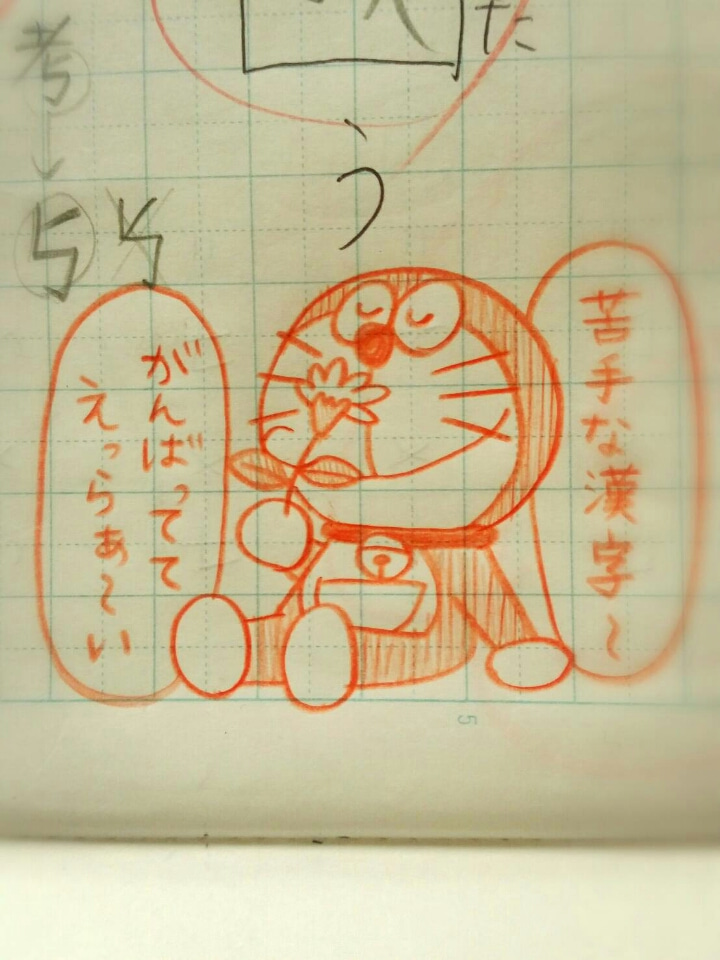 た
う
苦手な漢字〜
がんばってて
えっらぁ〜い
考
5